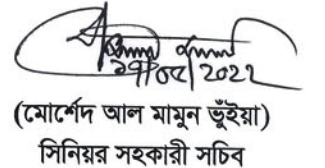 ২০২২
(মোর্শেদ আল মামুন ভুঁইয়া)
সিনিয়র সহকারী সচিব